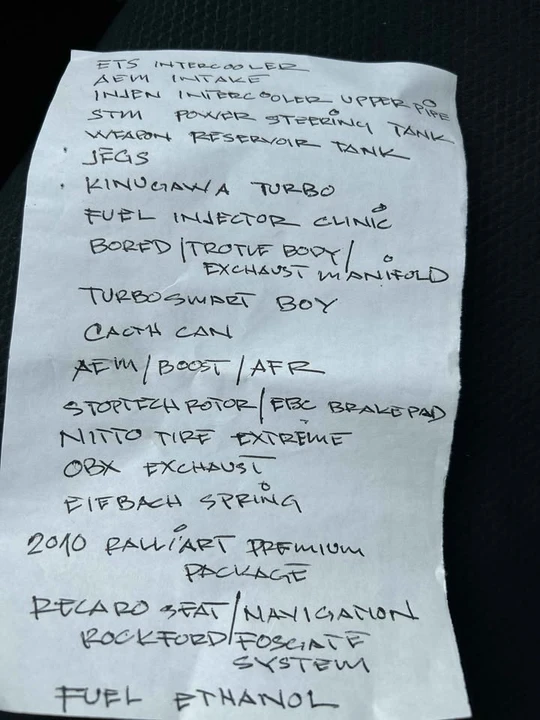 ETS INTERCOOLER
AEM INTAKE
INJEN INTERCOOLER UPPER PIPE
STM POWER STEERING TANK
WEAPON RESERVOIR TANK
JEGS
KINUGAWA TURBO
FUEL INJECTOR CLINIC
BORED/TROTLE BODY/
EXHAUST MANIFOLD
TURBOSMART BOY
CACTH CAN
AEM/BOOST/AFR
STOPTECH ROTOR/EBC BRAKEPAD
NITTO TIRE EXTREME
OBX EXHAUST
EIEBACH SPRING
2010 RALLIART PREMIUM
PACKAGE
RECARO SEAT/NAVIGATION
ROCKFORD/FOSGATE
SYSTEM
FUEL ETHANOL